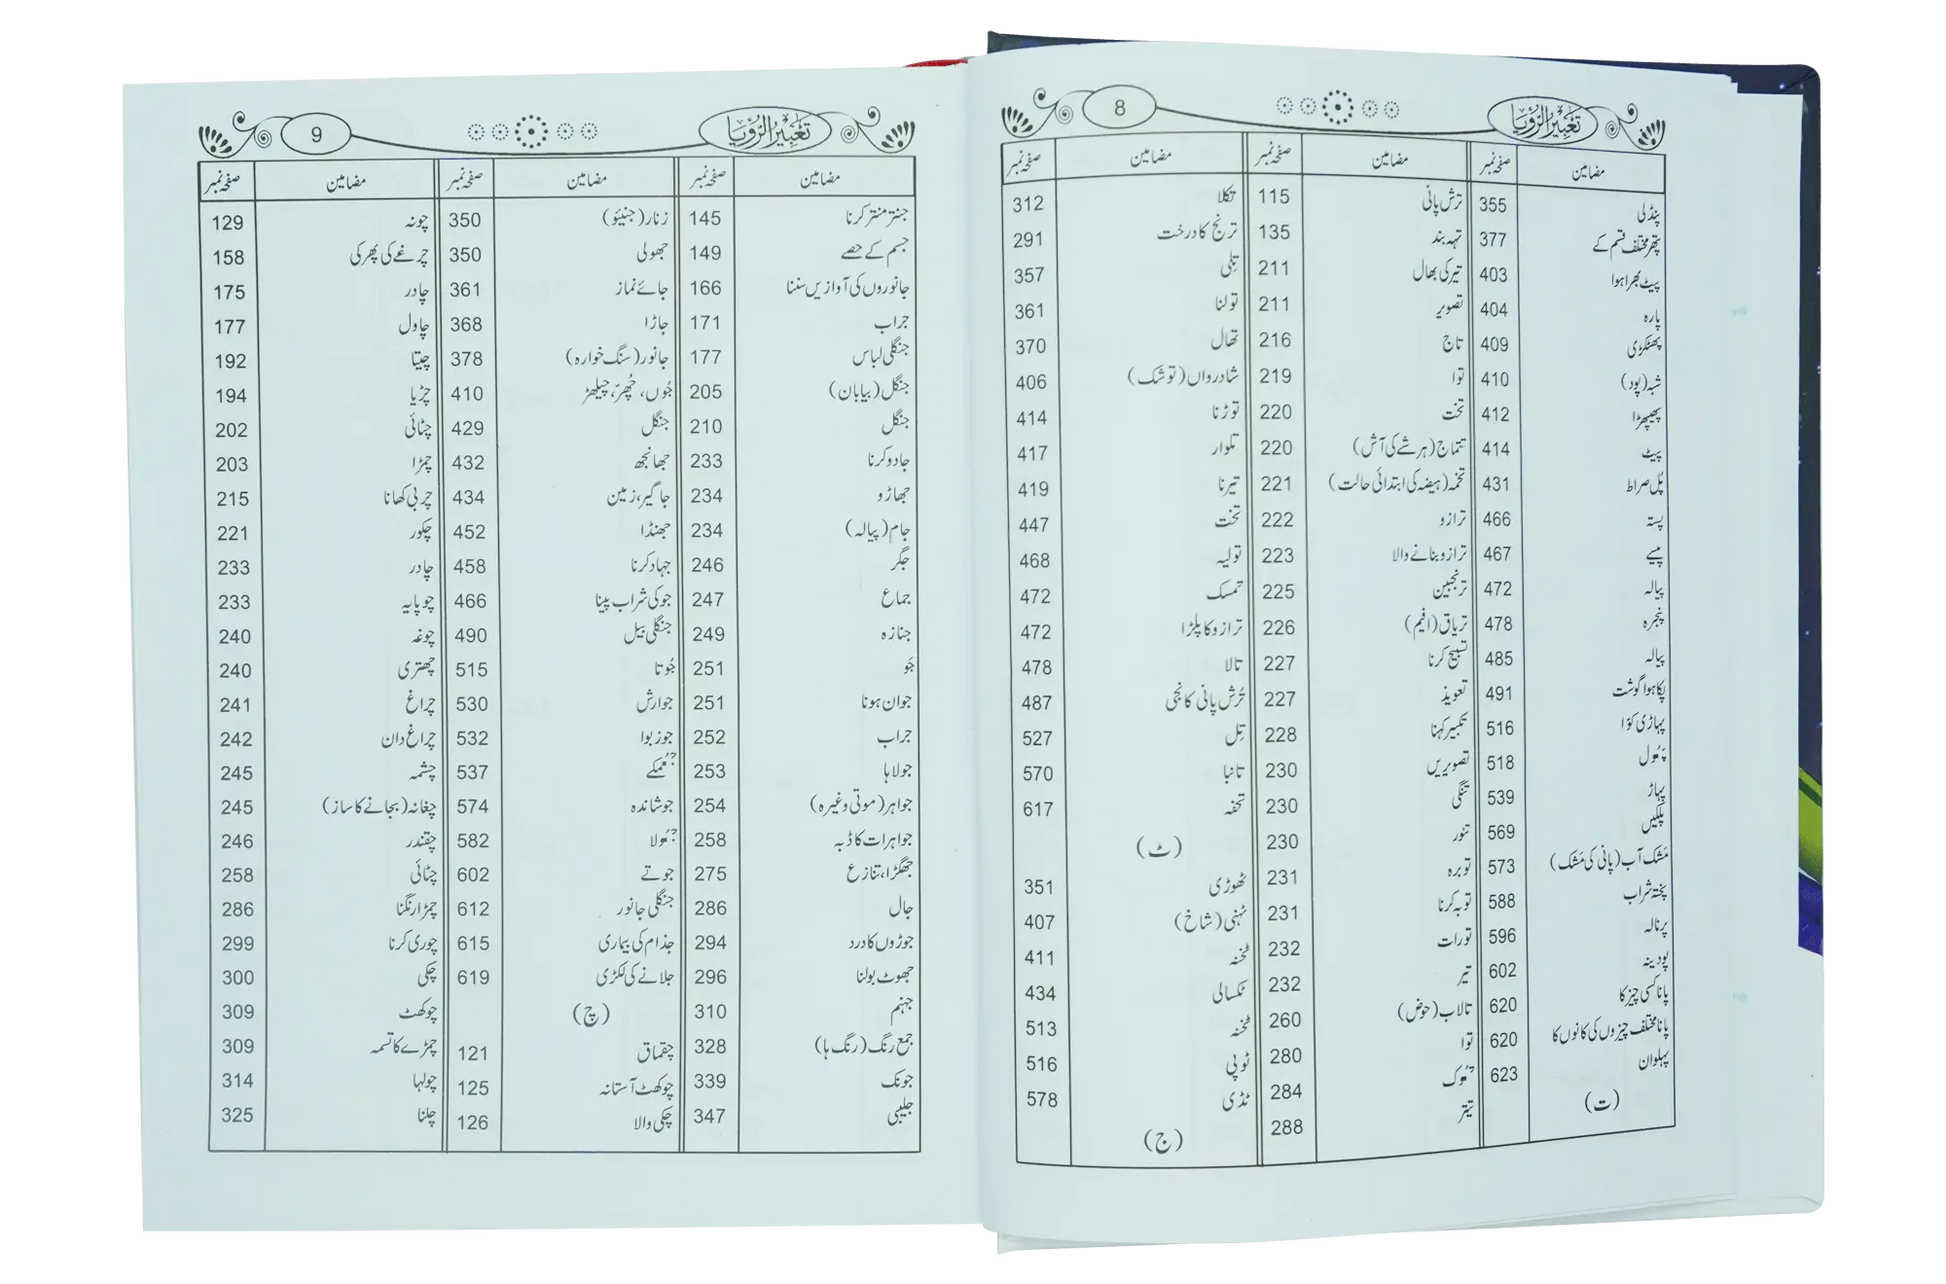 تعبیر الرؤیا
8
مضامین صفحہ نمبر
پنڈلی 355
پتھر مختلف قسم کے 377
پیٹ بھرا ہوا 403
پارہ 404
پھٹکڑی 409
شبہ (پود) 410
پھیپھڑا 412
پیٹ 414
پُل صراط 431
پستہ 466
پیسے 467
پیالہ 472
پنجرہ 478
پیالہ 485
پکا ہوا گوشت 491
پہاڑی کوّا 516
پھول 518
پہاڑ 539
پلکیں 569
مَشک آب (پانی کی مَشک) 573
پختہ شراب 588
پرنالہ 596
پودینہ 602
پانا کسی چیز کا 620
پانا مختلف چیزوں کی کانوں کا 620
پہلوان 623
(ت)
مضامین صفحہ نمبر
ترش پانی 115
تہہ بند 135
تیر کی بھال 211
تصویر 211
تاج 216
توا 219
تخت 220
تتماج (ہر شے کی آش) 220
تخمہ (ہیضہ کی ابتدائی حالت) 221
ترازو 222
ترازو بنانے والا 223
ترنجبین 225
تریاق (افیم) 226
تسبیح کرنا 227
تعویذ 227
تکبیر کہنا 228
تصویریں 230
تنگی 230
تنور 230
توبرہ 231
توبہ کرنا 231
تورات 232
تیر 232
تالاب (حوض) 260
توا 280
تھوک 284
تیتر 288
مضامین صفحہ نمبر
تکلا 312
ترنج کا درخت 291
تِلی 357
تولنا 361
تھال 370
شادرواں (توشک) 406
توڑنا 414
تلوار 417
تیرنا 419
تخت 447
تولیہ 468
تمسک 472
ترازو کا پلڑا 472
تالا 478
تُرش پانی کانجی 487
تِل 527
تانبا 570
تحفہ 617
(ٹ)
ٹھوڑی 351
ٹہنی (شاخ) 407
ٹخنہ 411
ٹکسالی 434
ٹخنہ 513
ٹوپی 516
ٹڈی 578
(ج)
تعبیر الرؤیا
9
مضامین صفحہ نمبر
جنتر منتر کرنا 145
جسم کے حصے 149
جانوروں کی آوازیں سننا 166
جراب 171
جنگلی لباس 177
جنگل (بیابان) 205
جنگل 210
جادو کرنا 233
جھاڑو 234
جام (پیالہ) 234
جگر 246
جماع 247
جنازہ 249
جَو 251
جوان ہونا 251
جراب 252
جولاہا 253
جواہر (موتی وغیرہ) 254
جواہرات کا ڈبہ 258
جھگڑا، تنازع 275
جال 286
جوڑوں کا درد 294
جھوٹ بولنا 296
جہنم 310
جمع رنگ (رنگ ہا) 328
جونک 339
جلیبی 347
مضامین صفحہ نمبر
زنار (جنیئو) 350
جھولی 350
جائے نماز 361
جاڑا 368
جانور (سنگ خوارہ) 378
جُوں، چُھرّ، چیلھڑ 410
جنگل 429
جھانجھ 432
جاگیر، زمین 434
جھنڈا 452
جہاد کرنا 458
جو کی شراب پینا 466
جنگلی بیل 490
جُوتا 515
جوارش 530
جوزبوا 532
جُھمکے 537
جوشاندہ 574
جُھولا 582
جوتے 602
جنگلی جانور 612
جذام کی بیماری 615
جلانے کی لکڑی 619
(چ)
چقماق 121
چوکھٹ آستانہ 125
چکی والا 126
مضامین صفحہ نمبر
چونہ 129
چرغے کی پھرکی 158
چادر 175
چاول 177
چیتا 192
چڑیا 194
چٹائی 202
چمڑا 203
چربی کھانا 215
چکور 221
چادر 233
چوپایہ 233
چوغہ 240
چھتری 240
چراغ 241
چراغ دان 242
چشمہ 245
چغانہ (بجانے کا ساز) 245
چقندر 246
چٹائی 258
چمڑا رنگنا 286
چوری کرنا 299
چکی 300
چوکھٹ 309
چمڑے کا تسمہ 309
چولہا 314
چلنا 325